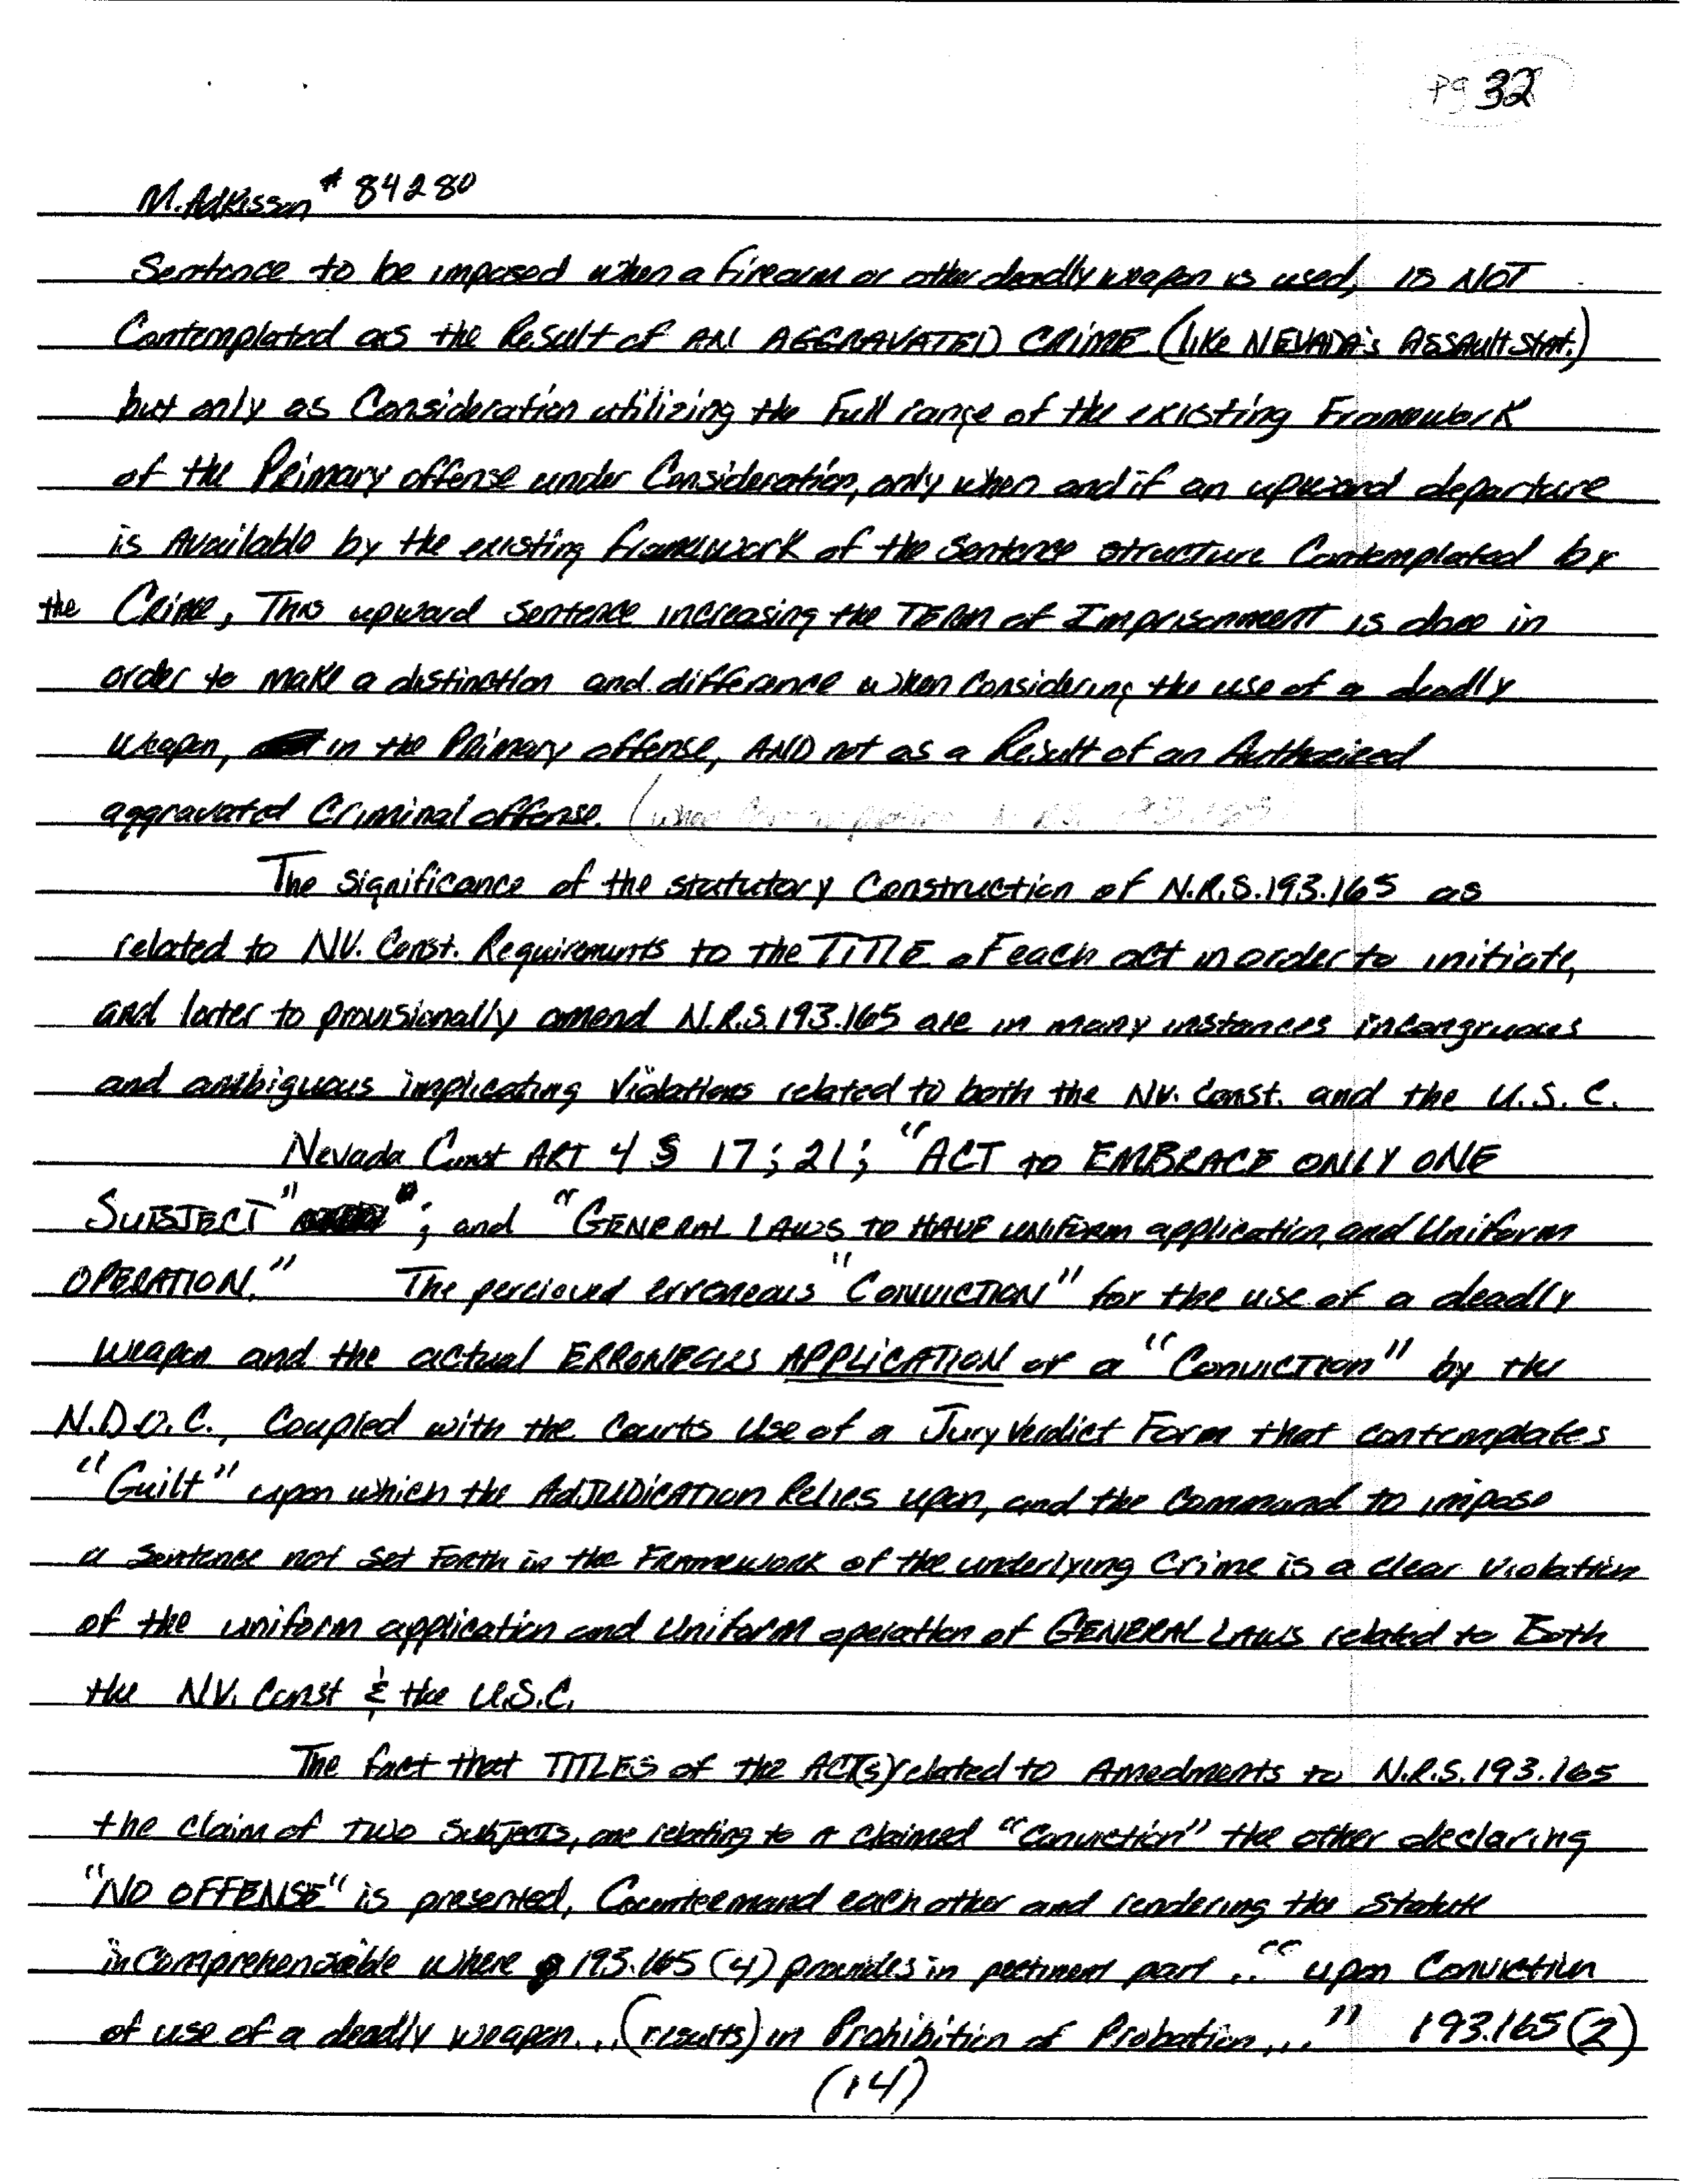 Pg 32
M. Adkisson # 84280
Sentence to be imposed when a firearm or other deadly weapon is used, is NOT
Contemplated as the Result of AN AGGRAVATED CRIME (like NEVADA's ASSAULT STAT.)
but only as Consideration utilizing the Full range of the existing Framework
of the Primary offense under Consideration, only when and if an upward departure
is Available by the existing framework of the Sentence structure Contemplated by
the Crime, This upward sentence increasing the TERM of Imprisonment is done in
order to make a distinction and difference when considering the use of a deadly
weapon, in the Primary offense, AND not as a Result of an Authorized
aggravated Criminal offense. (when
The significance of the statutory Construction of N.R.S. 193.165 as
related to NV. Const. Requirements to the TITLE of each act in order to initiate,
and later to provisionally amend N.R.S. 193.165 are in many instances incongruous
and ambiguous implicating Violations related to both the NV. Const. and the U.S.C.
Nevada Const ART 4 § 17; 21; "ACT to EMBRACE ONLY ONE
SUBJECT" "; and "GENERAL LAWS TO HAVE UNIFORM application, and Uniform
OPERATION." The percieved erroneous "CONVICTION" for the use of a deadly
weapon and the actual ERRONEOUS APPLICATION of a "CONVICTION" by the
N.D.O.C., Coupled with the Courts Use of a Jury Verdict Form that contemplates
"Guilt" upon which the ADJUDICATION Relies upon, and the Command to impose
a Sentence not set Forth in the FRAMEWORK of the underlying Crime is a clear violation
of the uniform application and Uniform operation of GENERAL LAWS related to Both
the NV. Const & the U.S.C.
The fact that TITLES of the ACT(s) related to Amedments to N.R.S. 193.165
the claim of TWO Subjects, one relating to a claimed "Conviction" the other declaring
"NO OFFENSE" is presented, Countermand each other and rendering the Statute
incomprehensible where 193.165 (4) provides in pertinent part .. "upon Conviction
of use of a deadly weapon... (results) in Prohibition of Probation..." 193.165(2)
(14)